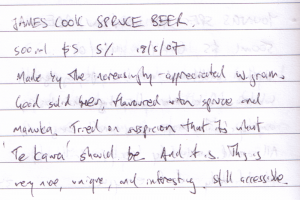 JAMES COOK SPRUCE BEER.
500ml $5 5% 18/5/07
Made by the increasingly-appreciated Wigram.
Good solid beer, flavoured with spruce and
manuka. Tried on suspicion that it's what
'Te Kawa' should be. And it is. This is
very nice, unique, and interesting. Still accessible.